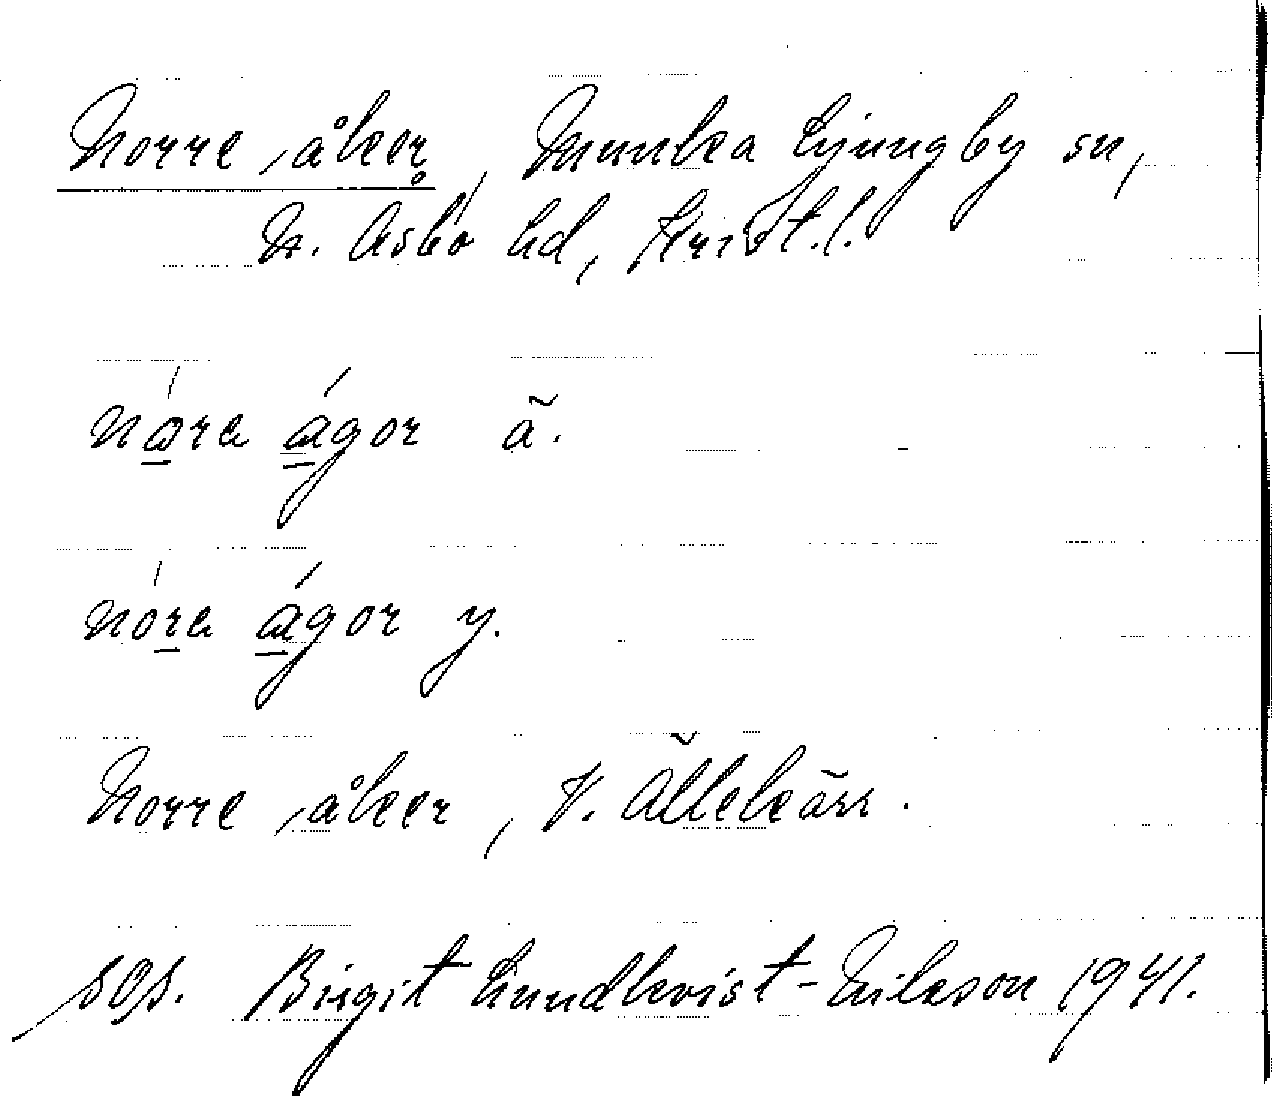 Norre åker, Munka Ljungby sn,
N. Åsbo hd, Krist. l.
nǫ́ra ą́gor ã.
nóra ą́gor y.
Norre åker, V. Ällekärr.
Birgit Lundkvist-Nilsson 1941.